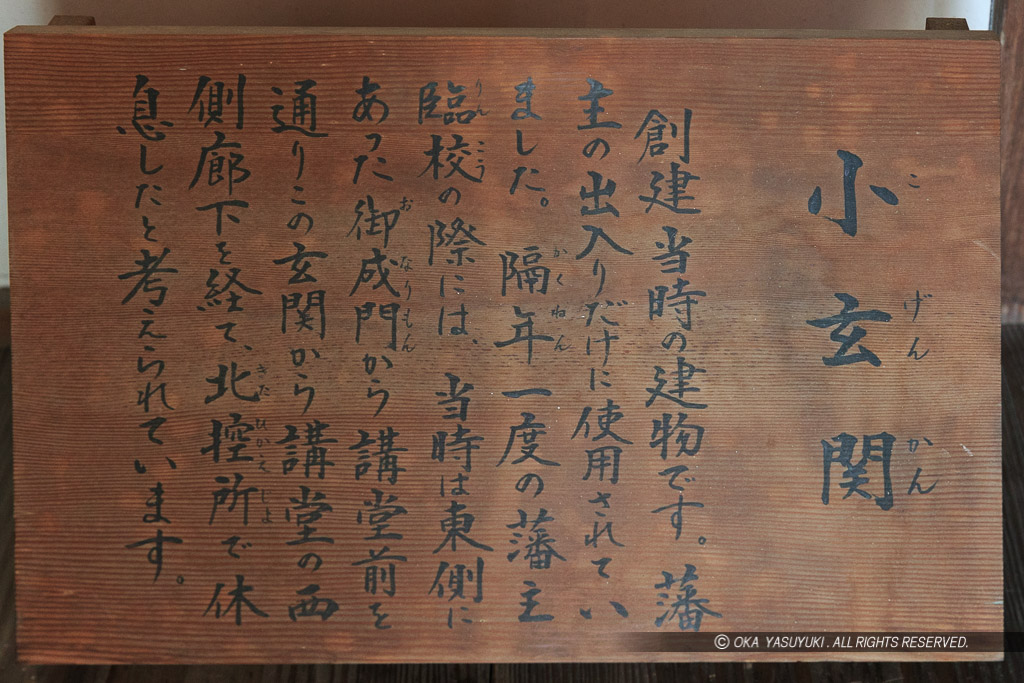 小玄関
こ げん かん
創建当時の建物です。藩
主の出入りだけに使用されてい
ました。隔年一度の藩主
かくねん
臨校の際には、当時は東側に
りんこう
あった御成門から講堂前を
おなりもん
通りこの玄関から講堂の西
側廊下を経て、北控所で休
きたひかえしょ
息したと考えられています。
© OKA YASUYUKI. ALL RIGHTS RESERVED.